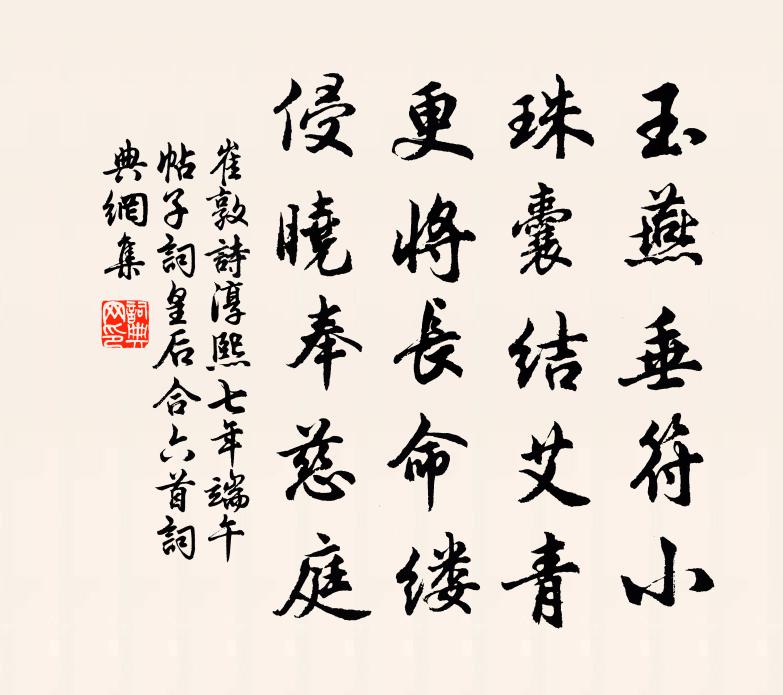 玉燕垂符小
珠囊结艾青
更将長命缕
侵曉奉慈庭
崔敦詩淳熙七年端午
帖子詞皇后合六首詞
典網集
詞典
网印